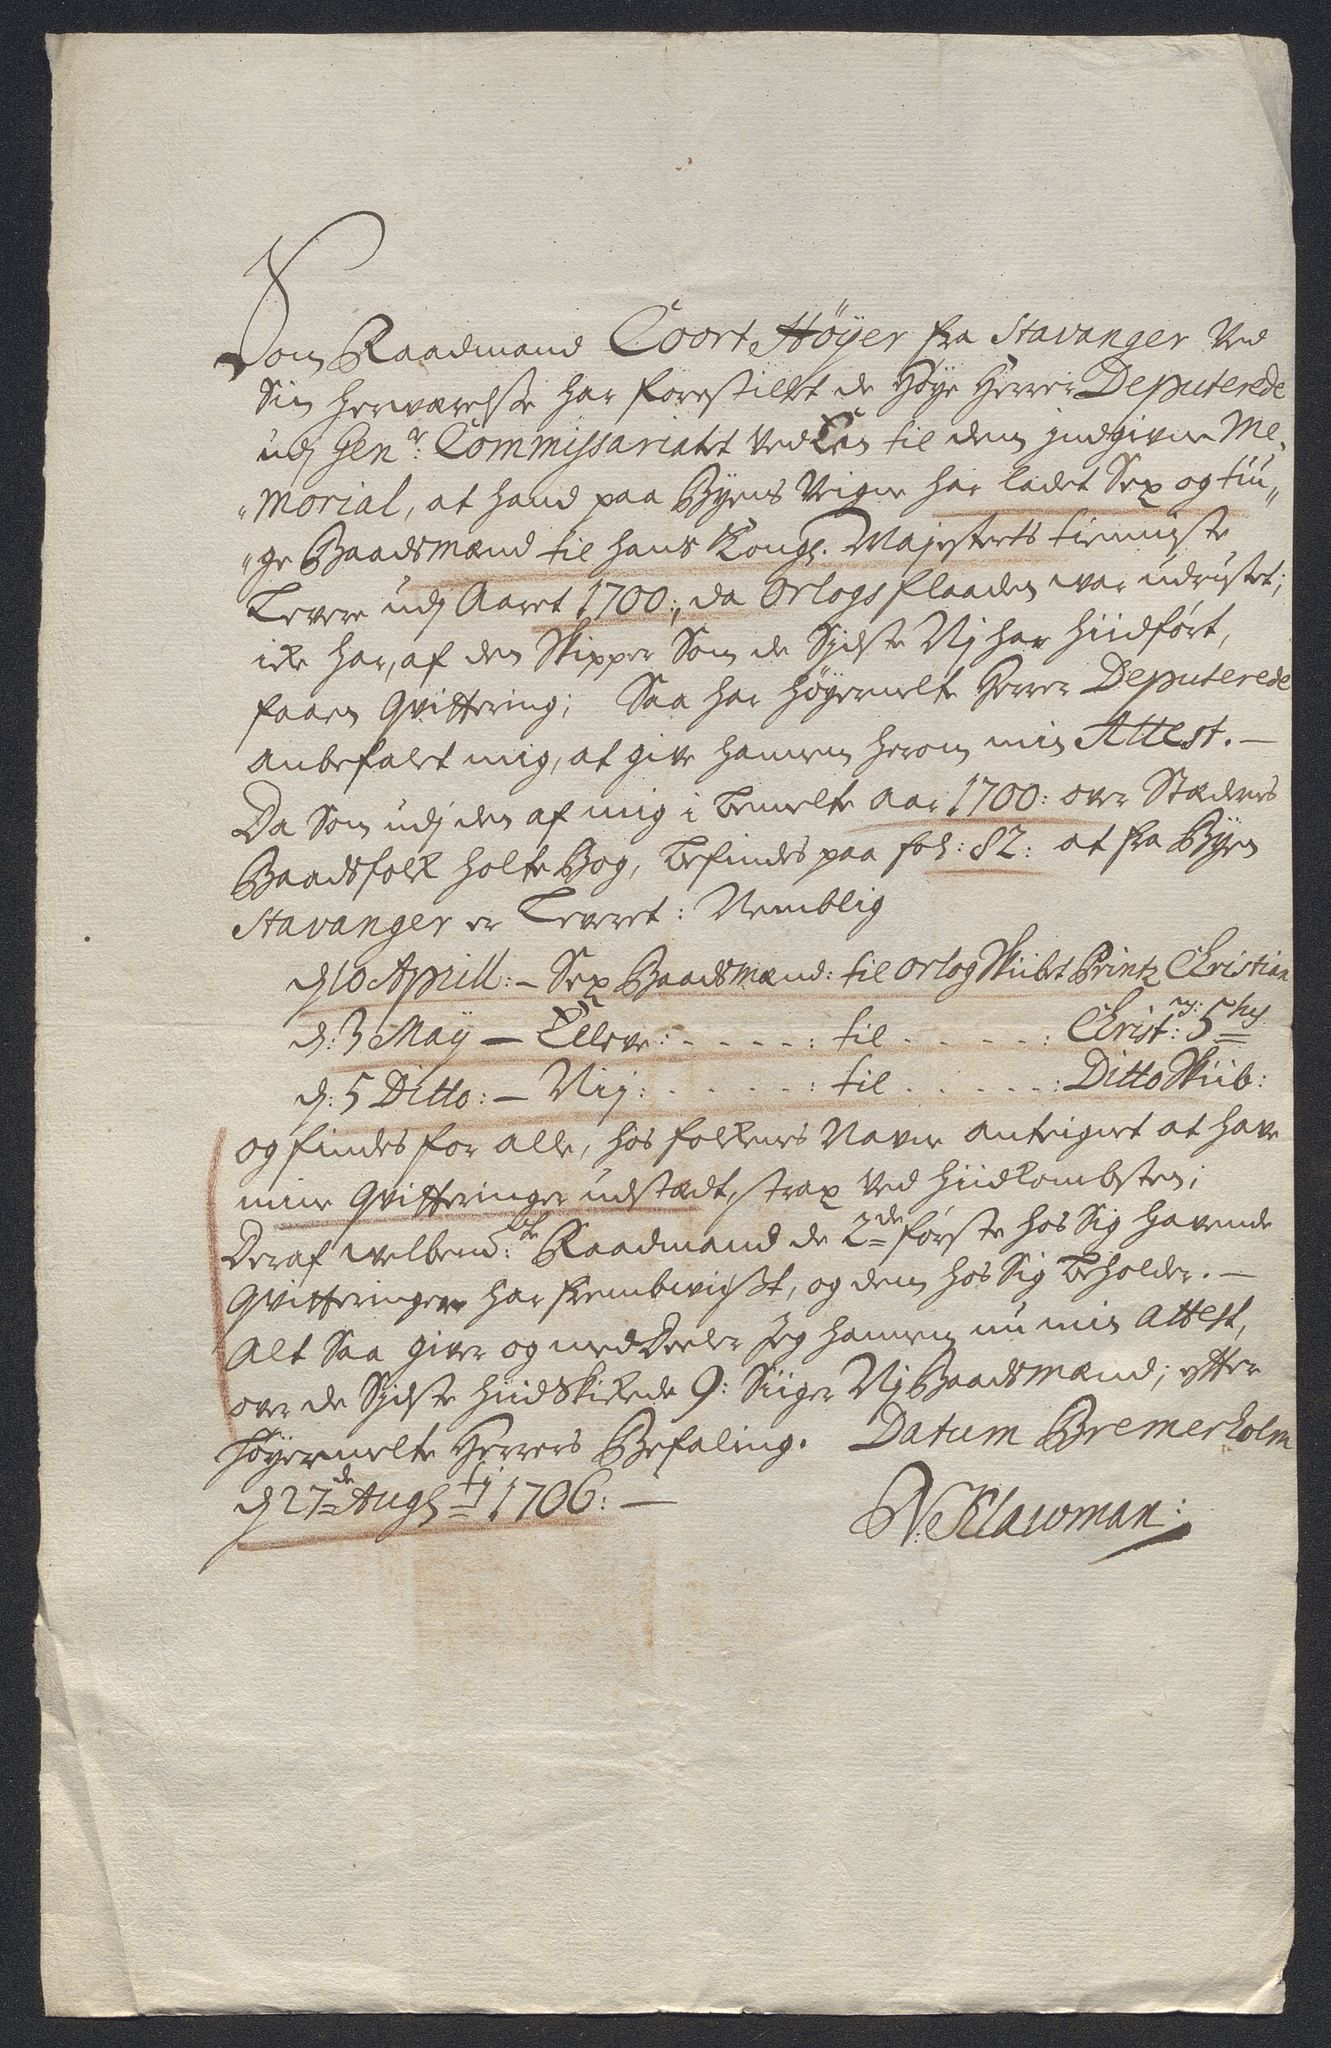 Som Raadmand Coort Høyer fra Stavanger ved
Sin herværelse har forestillet de Høye Herrer Deputerede
udj Gen:er Commissariatet ved En til dem jndgiven Me-
"morial, at hand paa Byens Veigne har ladet Sex og tiu"
"ge Baadsmænd til hans Kongl. Majestets tienniste
Levere udj Aaret 1700:, da Orlogsflaaden war udrustet;
icke har, af den Skipper Som de Sidste Nj har hiidført,
faaen Qvittering; Saa har høyermelte Herrer Deputerede
anbefalet mig, at give hannem herom min Attest. —
Da Som udj den af mig i bemelte Aar 1700: over Stædernes
Baadsfolk holte Bog, befindes paa fol: 82: at fra Byen
Stavanger er Leveret: Nemblig
d. 10 Aprill: — Sex Baadsmænd: til OrlogSkibet Printz Christian
d: 3 May — Elleve: - - - - : til - - - - - : Christ: ny: 5 hj
d: 5 Ditto: — Nij: - - - - - : til - - - - - : Ditto Skib:
og findes for alle, hos folkenes Navne anteignet at have
mine Qvitteringer udstædt, strax ved hiidkombsten;
Deraf welbem:te Raadmand de 2de første hos Sig havende
Qvitteringer har frembwißt, og dem hos Sig beholder. —
Alt Saa giver og med Deeler Jeg hannem nu min Attest,
over de Sidste hiidskickede 9: Siiger Nj Baadsmænd; efter
høyermelte Herrers Befaling. Datum Bremerholm
d 27de Aug:tj 1706: —
N: Klawman: